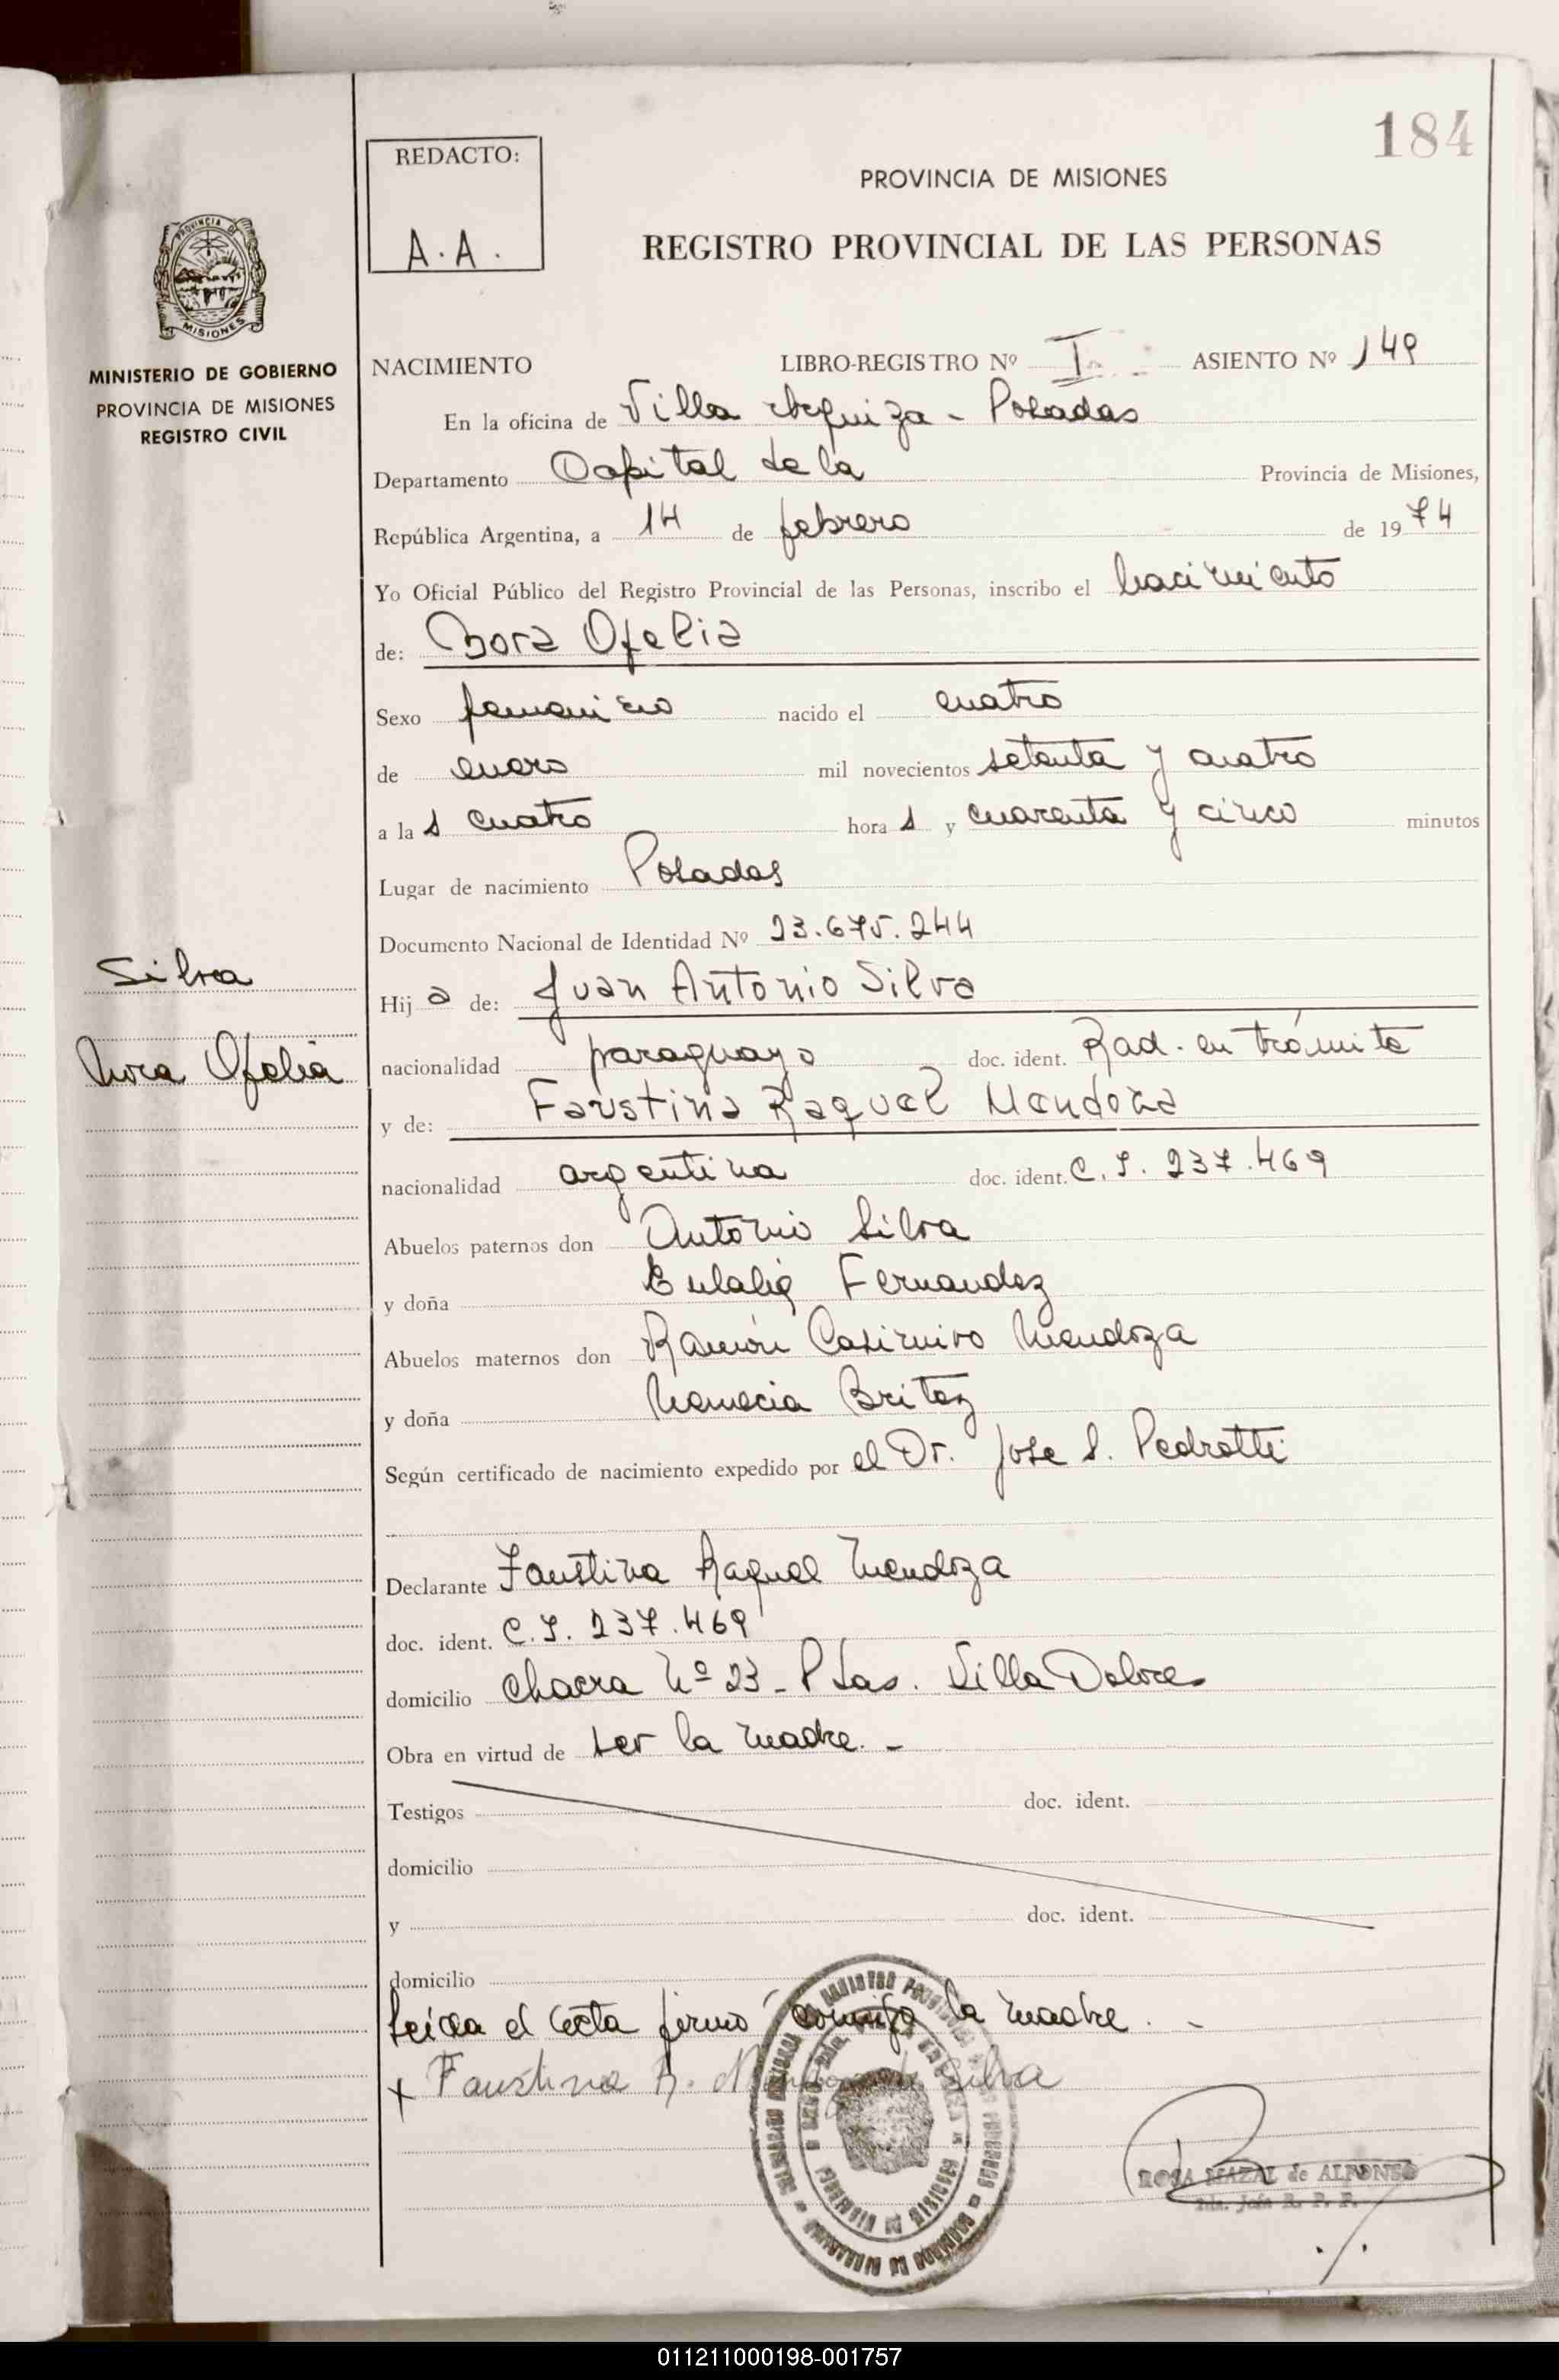 184
REDACTO:
A.A.
PROVINCIA DE MISIONES
REGISTRO PROVINCIAL DE LAS PERSONAS
PROVINCIA DE
MISIONES
MINISTERIO DE GOBIERNO
PROVINCIA DE MISIONES
REGISTRO CIVIL
NACIMIENTO LIBRO-REGISTRO Nº I ASIENTO Nº 149
En la oficina de Villa Urquiza - Posadas
Departamento Capital de la Provincia de Misiones,
República Argentina, a 14 de febrero de 1974
Yo Oficial Público del Registro Provincial de las Personas, inscribo el nacimiento
de: Nora Ofelia
Sexo femenino nacido el cuatro
de enero mil novecientos setenta y cuatro
a las cuatro horas y cuarenta y cinco minutos
Lugar de nacimiento Posadas
Documento Nacional de Identidad Nº 23.675.244
Silva
Hija de: Juan Antonio Silva
Nora Ofelia
nacionalidad paraguayo doc. ident. Rad. en trámite
y de: Faustina Raquel Mendoza
nacionalidad argentina doc. ident. C.I. 237.469
Abuelos paternos don Antonio Silva
y doña Eulalia Fernandez
Abuelos maternos don Ramón Casimiro Mendoza
y doña Nemecia Britez
Según certificado de nacimiento expedido por el Dr. Jose S. Pedrotti
Declarante Faustina Raquel Mendoza
doc. ident. C.I. 237.469
domicilio Chacra Nº 23 - Pdas. Villa Dolores
Obra en virtud de ser la madre. -
Testigos doc. ident.
domicilio
y doc. ident.
domicilio
Leida el acta firmó conmigo la madre. -
x Faustina R. Mendoza de Silva
ROSA MAZAL de ALFONSO
011211000198-001757